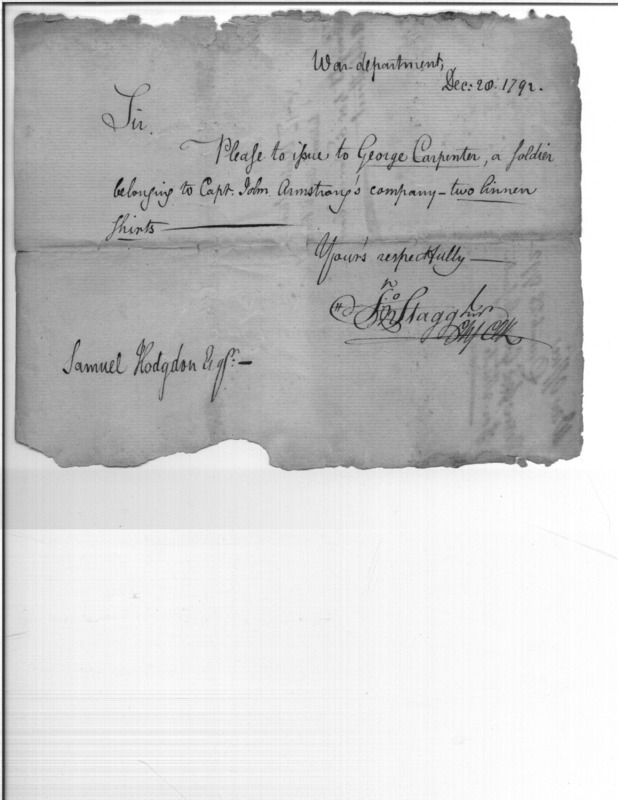 War department,
Dec: 20. 1792.
Sir.
Please to issue to George Carpenter, a soldier
belonging to Capt. John Armstrong's company – two linnen
shirts
Your's respectfully —
Jno Stagg Junr
Samuel Hodgdon Esqr. —